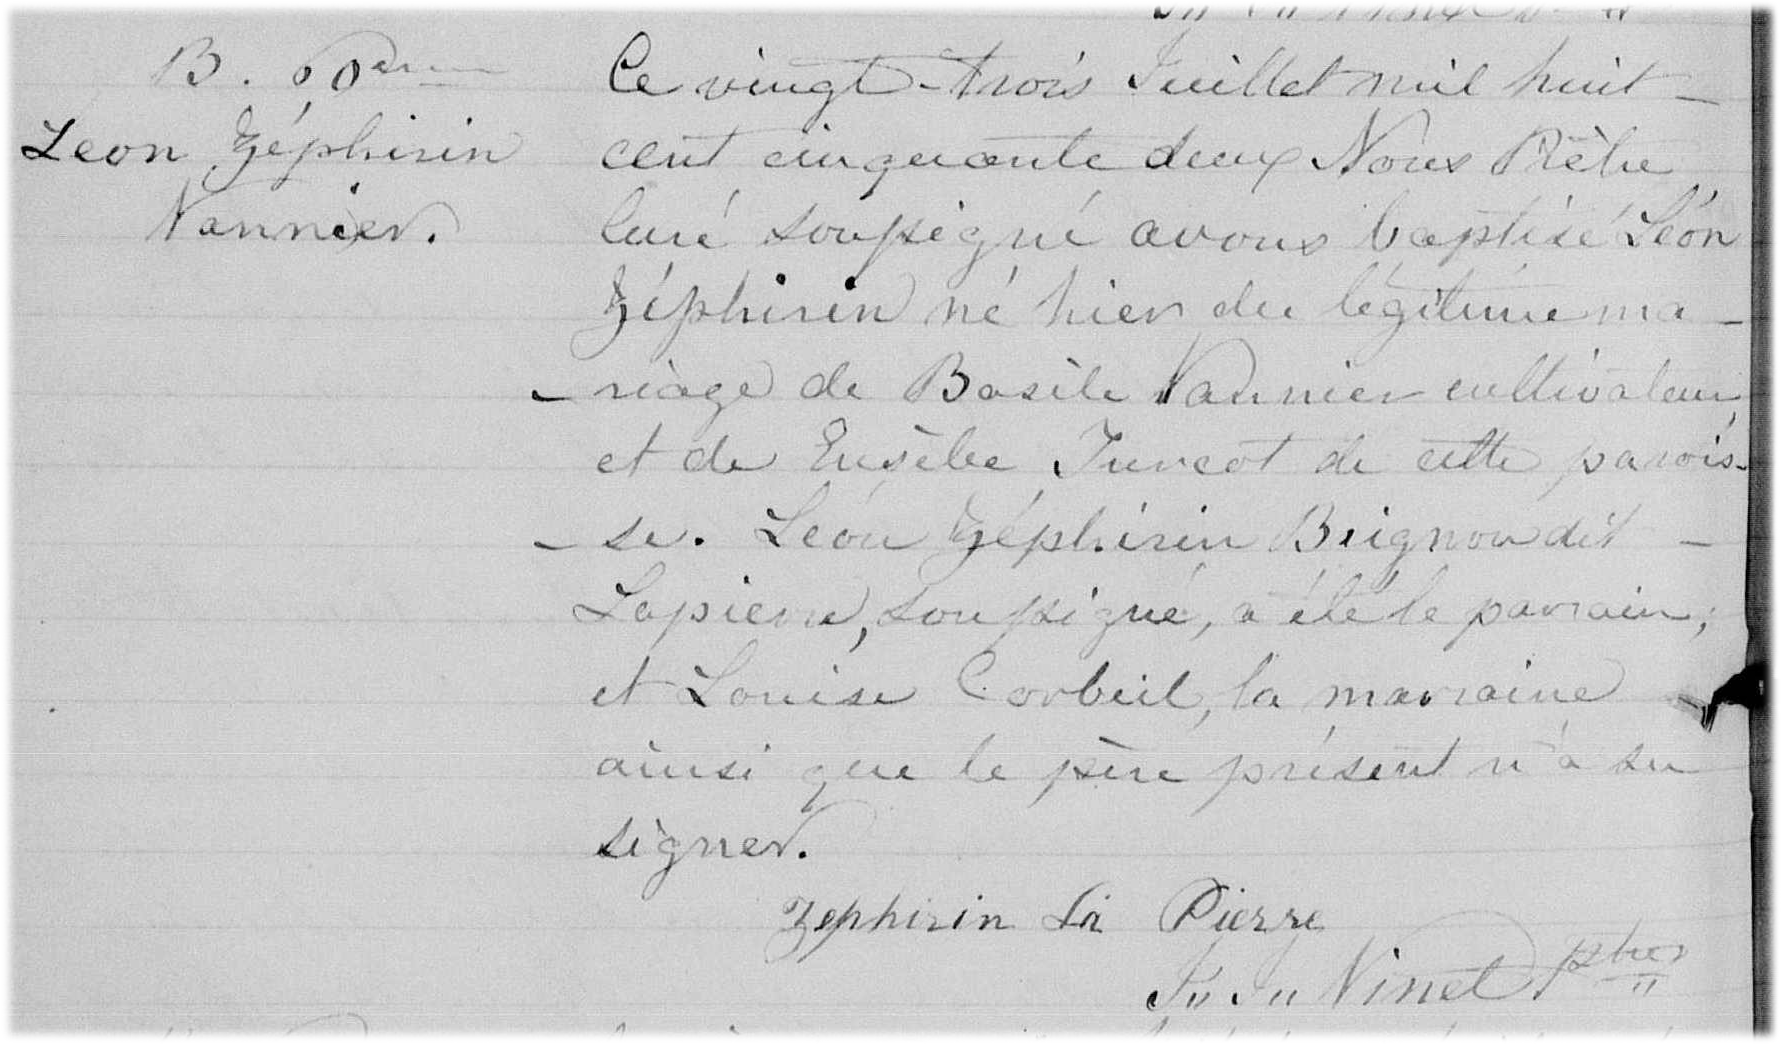 B. 60eme
Leon Zéphirin
Vannier.
Ce vingt-trois Juillet mil huit-
cent cinquante deux Nous Prêtre
Curé soussigné avons baptisé Léon
Zéphirin né hier du légitime ma-
-riage de Basile Vannier cultivateur
et de Eusèbe Turcot de cette parois-
-se. Léon Zéphirin Brignon dit -
Lapierre, soussigné, a été le parrain;
et Louise Corbeil, la marraine
ainsi que le père présent n'a su
signer.
Zephirin La Pierre
Ninet Ptre